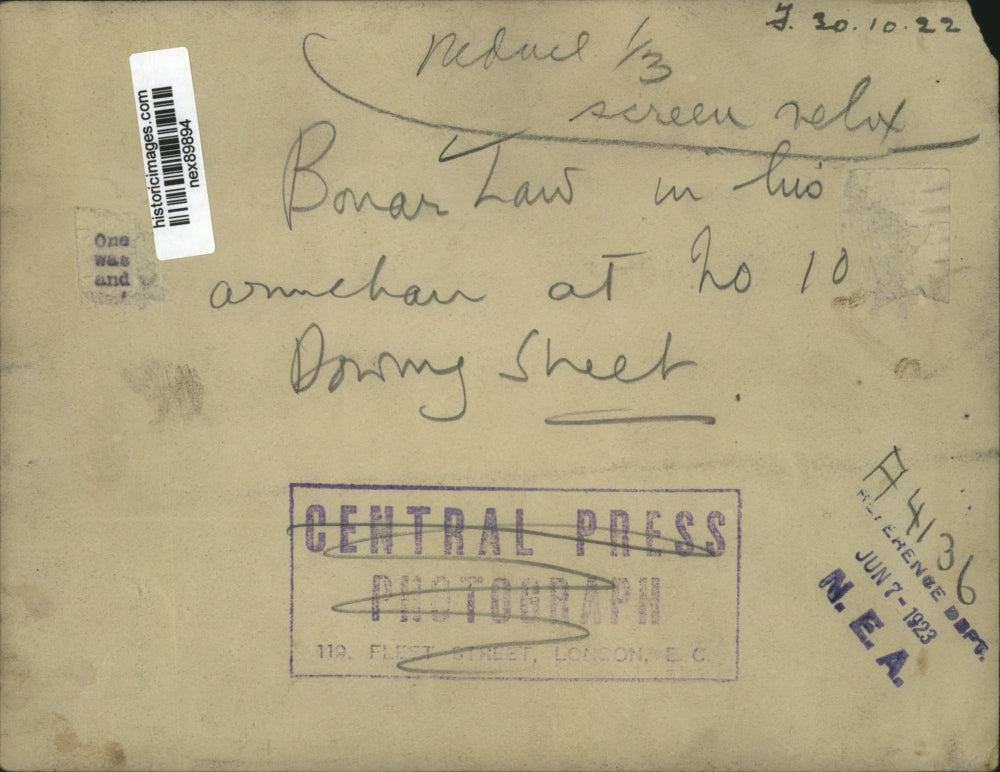 J. 30.10.22
reduce 1/3
screen velox
Bonar Law in his
armchair at No 10
Downing Street.
historicimages.com
nex89894
One
was
and
CENTRAL PRESS
PHOTOGRAPH
119. FLEET STREET, LONDON, E.C.
A 4136
REFERENCE DEPT.
JUN 7-1923
N. E. A.